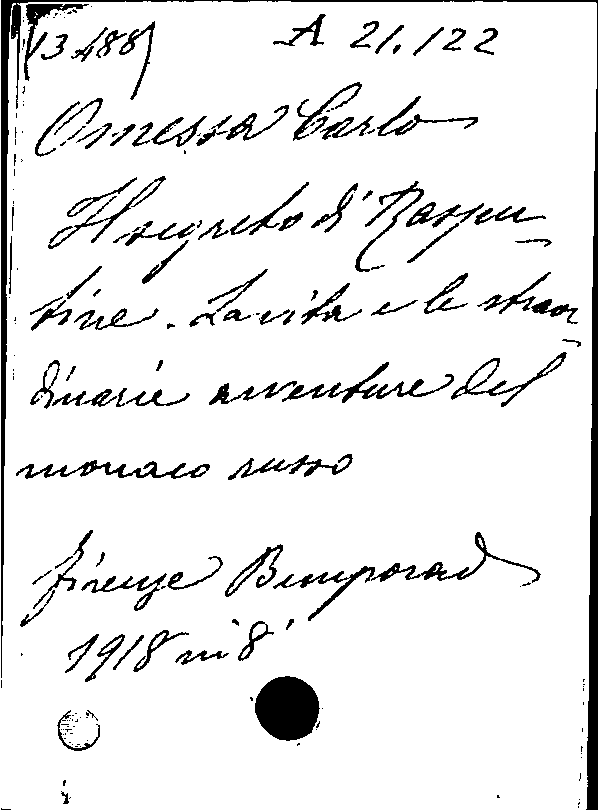 (13488) A 21.122
Omessa Carlo
Il segreto di Raspu-
tine. La vita e le straor-
dinarie avventure del
monaco russo
Firenze Bemporad
1918 in 8°